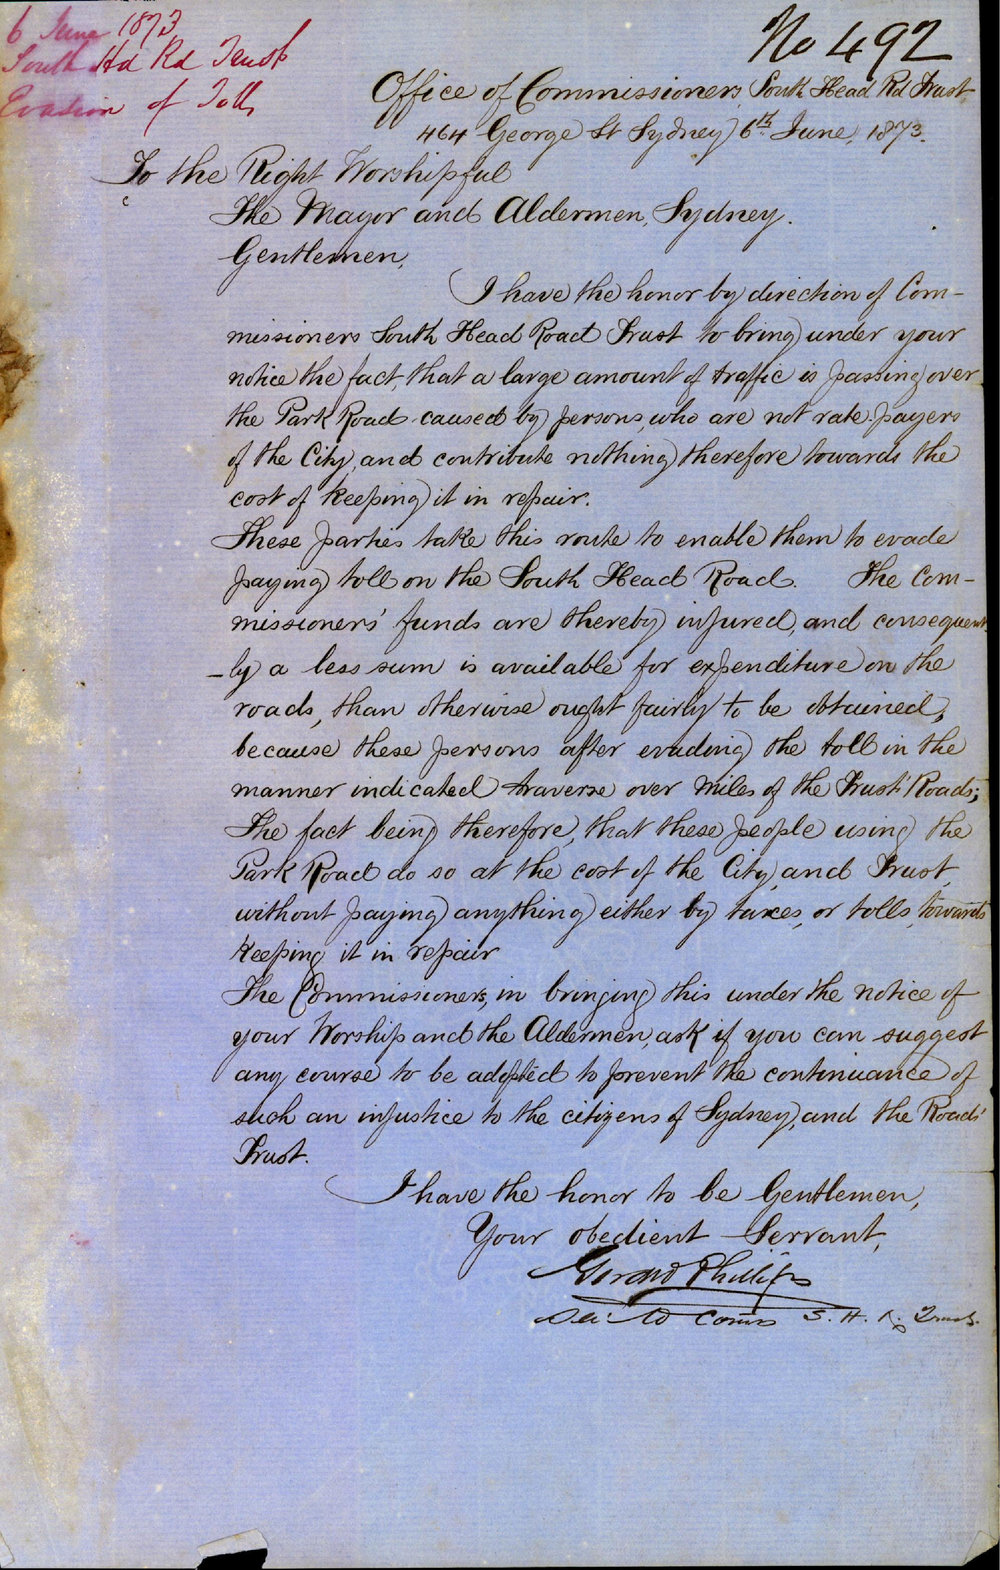 6 June 1873
South Hd Rd Trust
Evasion of Toll
No 492
Office of Commissioners South Head Rd Trust
464 George St Sydney 6th June, 1873.
To the Right Worshipful
The Mayor and Aldermen, Sydney.
Gentlemen,
I have the honor by direction of Com-
missioners South Head Road Trust to bring under your
notice the fact that a large amount of traffic is passing over
the Park Road caused by persons, who are not rate-payers
of the City, and contribute nothing therefore towards the
cost of keeping it in repair.
These parties take this route to enable them to evade
paying toll on the South Head Road. The Com-
missioners' funds are thereby injured, and consequent-
-ly a less sum is available for expenditure on the
roads, than otherwise ought fairly to be obtained,
because these persons after evading the toll in the
manner indicated traverse over miles of the Trust Roads;
The fact being therefore, that these people using the
Park Road do so at the cost of the City, and Trust,
without paying anything either by taxes, or tolls, towards
keeping it in repair
The Commissioners, in bringing this under the notice of
your Worship and the Aldermen, ask if you can suggest
any course to be adopted to prevent the continuance of
such an injustice to the citizens of Sydney, and the Roads'
Trust.
I have the honor to be Gentlemen,
Your obedient Servant,
Gerard Phillips
Comrs S. H. R. Trust.